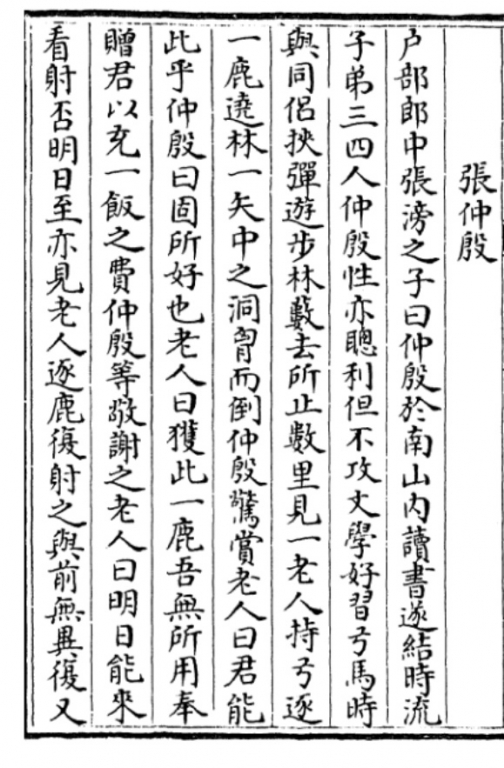 張仲殷
户部郎中張滂之子曰仲殷於南山内讀書遂結時流
子弟三四人仲殷性亦聰利但不攻文學好習弓馬時
與同侣挾彈遊步林藪去所止數里見一老人持弓逐
一鹿遶林一矢中之洞胷而倒仲殷驚賞老人曰君能
此乎仲殷曰固所好也老人曰獲此一鹿吾無所用奉
贈君以充一飯之費仲殷等敬謝之老人曰明日能來
看射否明日至亦見老人逐鹿復射之與前無異復又